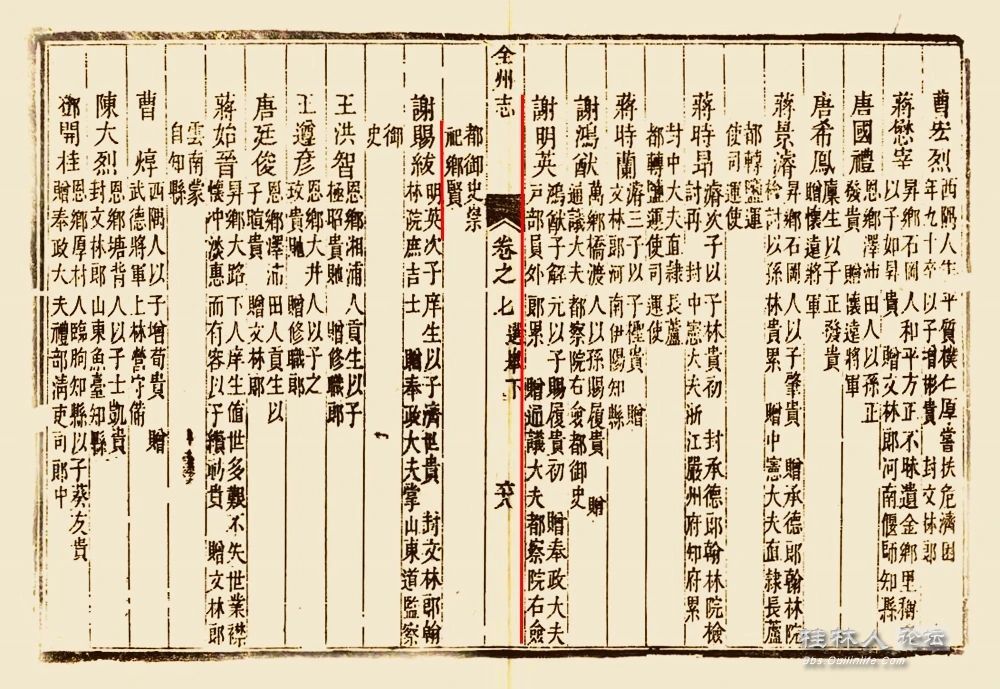 曹宏烈
西隅人生平質樸仁厚嘗扶危濟困
年九十卒以子增彬貴 封文林郎
蔣懋宰
昇鄉石岡人和平方正不昧遺金鄉里稱
以子如昇貴 贈文林郎河南偃師知縣
唐國禮
恩鄉澤沛田人以孫正
發貴 贈懷遠將軍
唐希鳳
廩生以子正發貴
贈懷遠將軍
蔣景濬
昇鄉石岡人以子肇貴 贈承德郎翰林院
檢討以孫林貴累 贈中憲大夫直隸長蘆
都轉鹽運
使司運使
蔣時昂
濬次子以子林貴初 封承德郎翰林院檢
討再 封中憲大夫浙江嚴州府知府累
封中大夫直隸長蘆
都轉鹽運使司運使
蔣時蘭
濬三子以子貴 贈
文林郎河南伊陽知縣
謝鴻猷
萬鄉橋渡人以孫賜履貴 贈
通議大夫都察院右僉都御史
謝明英
鴻猷子解元以子賜履貴初 贈奉政大夫
戶部員外郎累 贈通議大夫都察院右僉
全州志 卷之七 選舉下 六八
都御史崇
祀鄉賢
謝賜紱
明英次子庠生以子濟世貴 封文林郎翰
林院庶吉士 贈奉政大夫掌山東道監察
御
史
王洪智
恩鄉湘浦人貢生以子
極昭貴貤 贈修職郎
王遵彥
恩鄉大井人以子之
玫貴貤 贈修職郎
唐廷俊
恩鄉澤沛田人貢生以
子瑄貴 贈文林郎
蔣始晉
昇鄉大路下人庠生值世多艱不失世業襟
懷沖淡惠而有容以子績勛貴 贈文林郎
雲南蒙
自知縣
曹焞
西隅人以子增荀貴 贈
武德將軍上林營守備
陳大烈
恩鄉塘背人以子士凱貴
封文林郎山東魚臺知縣
鄧開桂
恩鄉厚村人臨朐知縣以子葵友貴
贈奉政大夫禮部清吏司郎中
桂林人论坛
bbs.Guilinlife.com